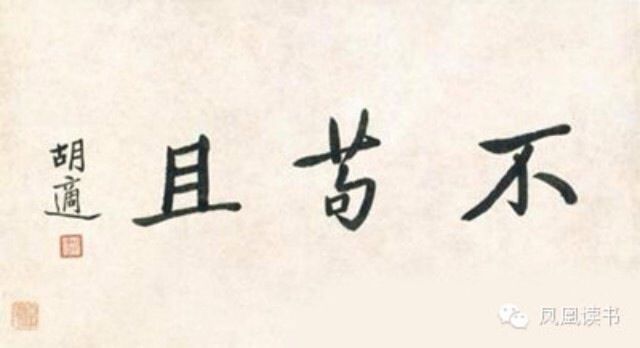 不苟且
胡適
凤凰读书